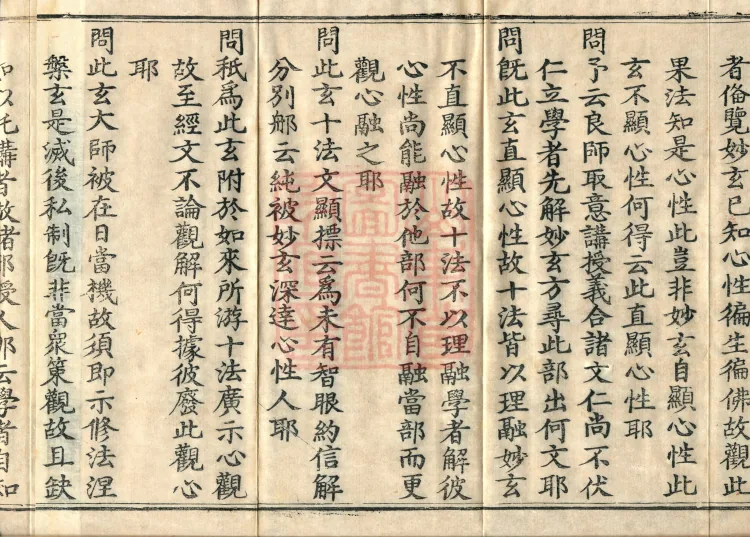 者俻覽妙玄已知心性徧生徧佛故觀此
果法知是心性此豈非妙玄自顯心性此
玄不顯心性何得云此直顯心性耶
問予云良師取意講授義合諸文仁尚不伏
仁立學者先解妙玄方尋此部出何文耶
問旣此玄直顯心性故十法皆以理融妙玄
不直顯心性故十法不以理融學者解彼
心性尚能融於他部何不自融當部而更
觀心融之耶
問此玄十法文顯摽云爲未有智眼約信解
分別那云純被妙玄深達心性人耶
問秖爲此玄附於如來所游十法廣示心觀
故至經文不論觀解何得據彼廢此觀心
耶
問此玄大師被在日當機故須即示修法涅
槃玄是滅後私制旣非當衆策觀故且缺
如以托講者故諸部授人那云學者自知